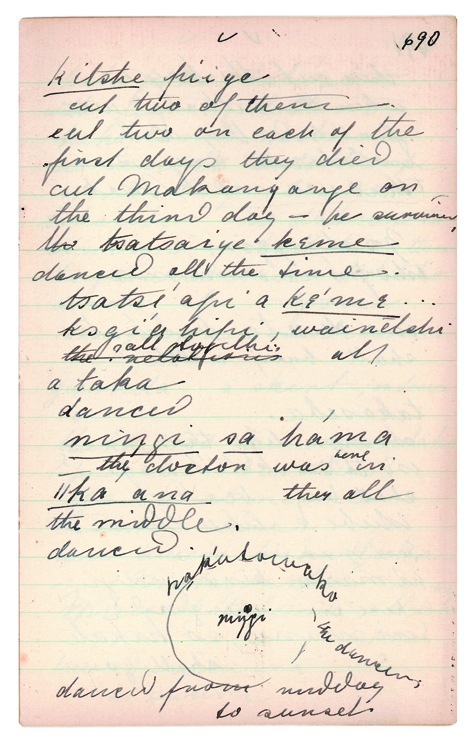 690
kitshe piige
cut two of them
cut two on each of the
first days they died
cut Makangange on
the third day – he survived
the tsatsaige keme
danced all the time.
tsatsi api a ke'me...
ksgi
all
the relations all
a taka
danced
niygi sa ha'ma
– the doctor was here in
||ka ana they all
the middle.
danced
niygi
dancing
danced from midday
to sunset